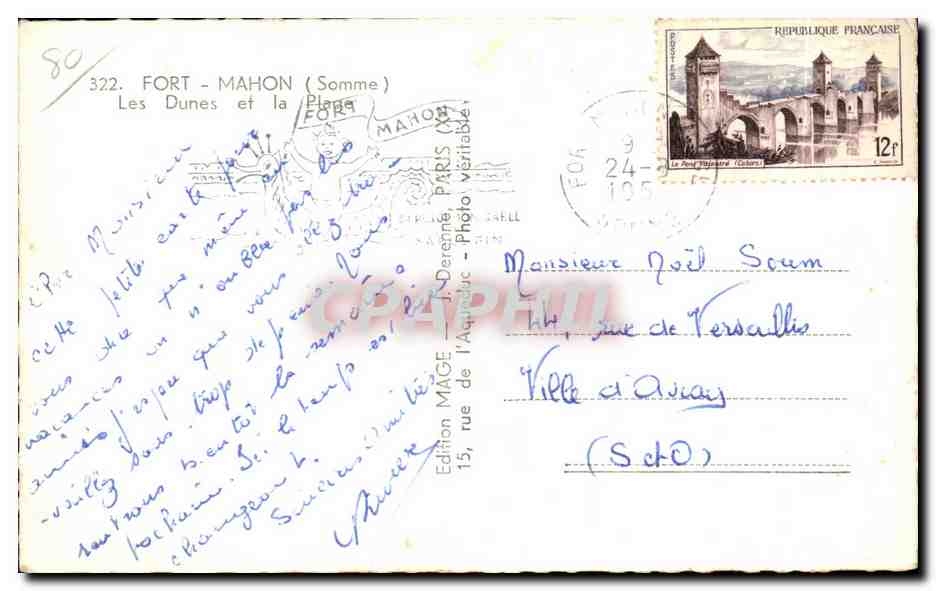 80
322. FORT - MAHON (Somme)
Les Dunes et la Plage
FORT MAHON
REPUBLIQUE FRANÇAISE
POSTES
Le Pont Valentré (Cahors)
12f
9
24-
195
Cher Monsieur
cette petite carte pour
vous dire que même en
vacances on n'oublie pas les
amis. J'espère que vous
-vaillez sans trop de peine. Nous
rentrons bientôt la semaine
prochaine. Ici le temps est
changeant.
Sincères amitiés
Edition MAGE - J. Derenne, PARIS (XV
15, rue de l'Aqueduc - Photo véritable
Monsieur Noël Soum
44, rue de Versailles
Ville d'Avray
(S et O)
CPAPHIL